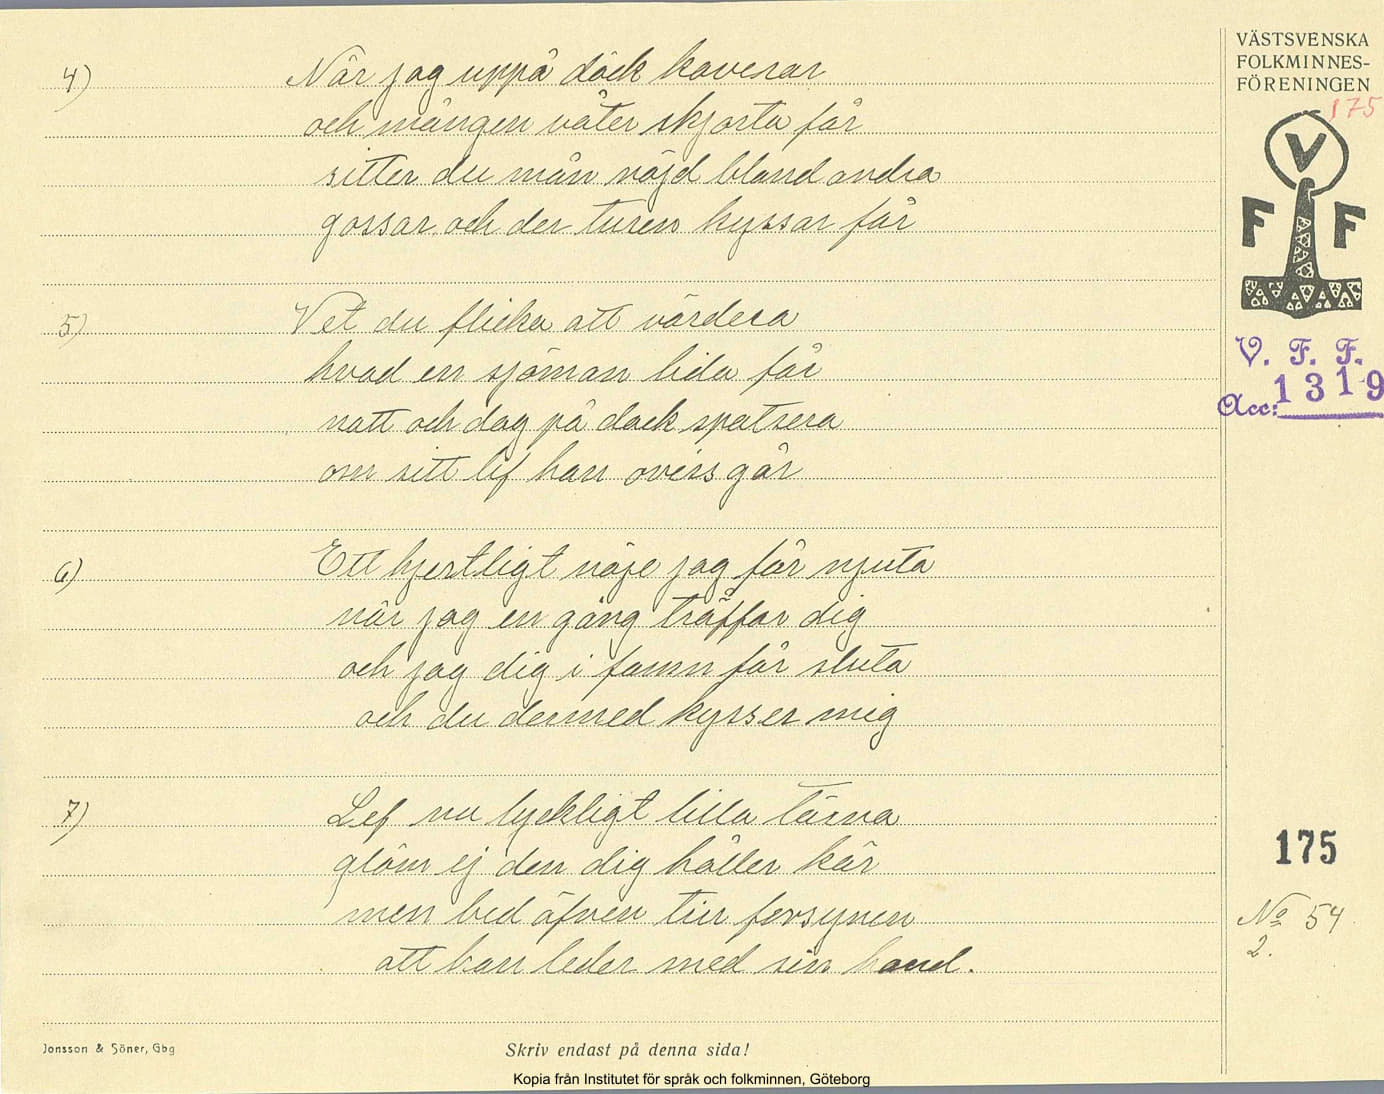 4) När jag uppå däck kaverar
och mången våter skjorta får
sitter du mån nöjd bland andra
gossar och der turen kyssar får
5) Vet du flicka att värdera
hvad en sjöman lida får
natt och dag på däck spatsera
om sitt lif han oviss går
6) Ett hjertligt nöje jag får njuta
när jag en gång träffar dig
och jag dig i famn får sluta
och du dermed kysser mig
7) Lef nu lyckligt lilla tärna
glöm ej den dig håller kär
men bed äfven till forsynen
att han leder med sin hand.
VÄSTSVENSKA
FOLKMINNES-
FÖRENINGEN
175
V
F F
V. F. F.
Acc: 1319
175
No 54
2.
Jonsson & Söner, Gbg
Skriv endast på denna sida!
Kopia från Institutet för språk och folkminnen, Göteborg